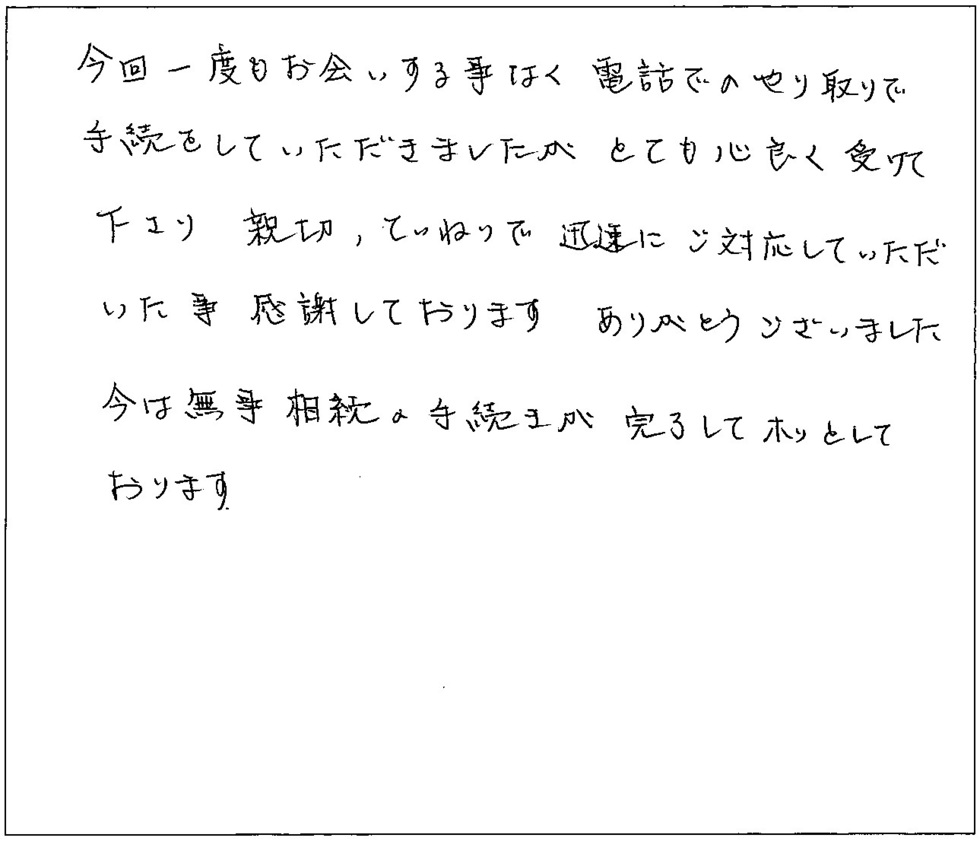 今回一度もお会いする事なく 電話でのやり取りで
手続をしていただきましたが とても心良く 受けて
下さり 親切,ていねいで 迅速に ご対応していただ
いた事 感謝しております ありがとうございました
今は無事 相続の手続きが 完了してホッとして
おります